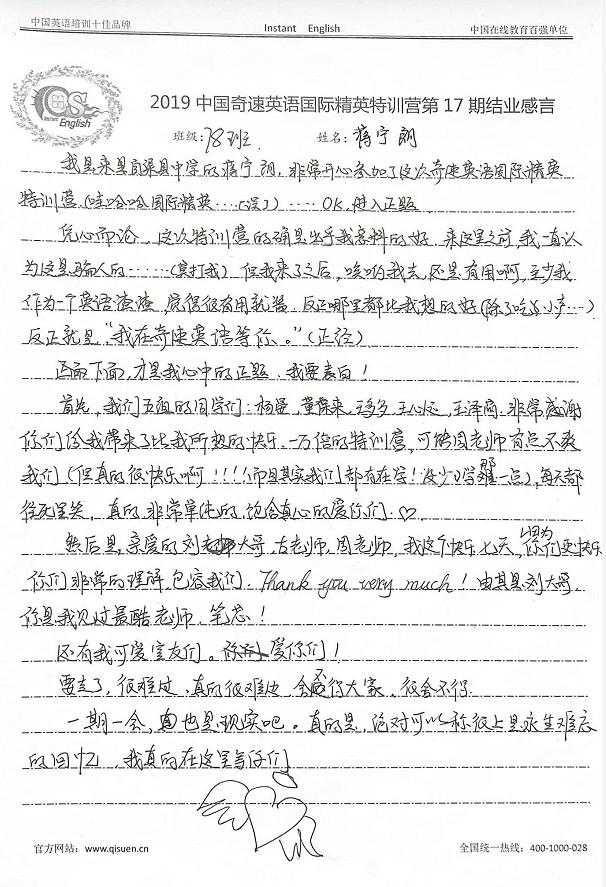 中国英语培训十佳品牌 Instant English 中国在线教育百强单位
Instant English
2019中国奇速英语国际精英特训营第17期结业感言
班级:78班 姓名:蒋宁朗
我是来自渠县中学的蒋宁朗,非常开心参加了这次奇速英语国际精英
特训营(哇哈哈国际精英……(误))……OK,进入正题
凭心而论,这次特训营的确是出乎我意料的好,来这里之前,我一直认
为这是骗人的……(莫打我)但我来了之后,唉哟我去,还是有用啊,至少我
作为一个英语渣渣,觉得很有用就是,反正哪里都比我想的好(除了吃……)
反正就是“我在奇速英语等你。”(正经)
而下面,才是我心中的正题,我要表白!
首先,我们五组的同学们:杨曼,王泽商,非常感谢
你们给我带来了比我所想的快乐一万倍的特训营,可能周老师有点不爽
我们(但真的很快乐啊!!!!而且其实我们都有在学!至少学那一点),每天都
往死里笑,真的,非常单纯的,饱含真心的爱你们♡
然后是,亲爱的刘大哥,左老师,周老师,我这个快乐七天,因为你们更快乐
你们非常的理解,包容我们,Thank you very much!尤其是刘大哥,
你是我见过最酷老师,笔芯!
还有我可爱室友们。爱你们!
要走了,很难过,真的很难过,会舍不得大家,很会不得
一期一会,也是现实吧。真的是,绝对可以称得上是永生难忘
的回忆,我真的在这里等你们
官方网站:www.qisuen.cn 全国统一热线:400-1000-028